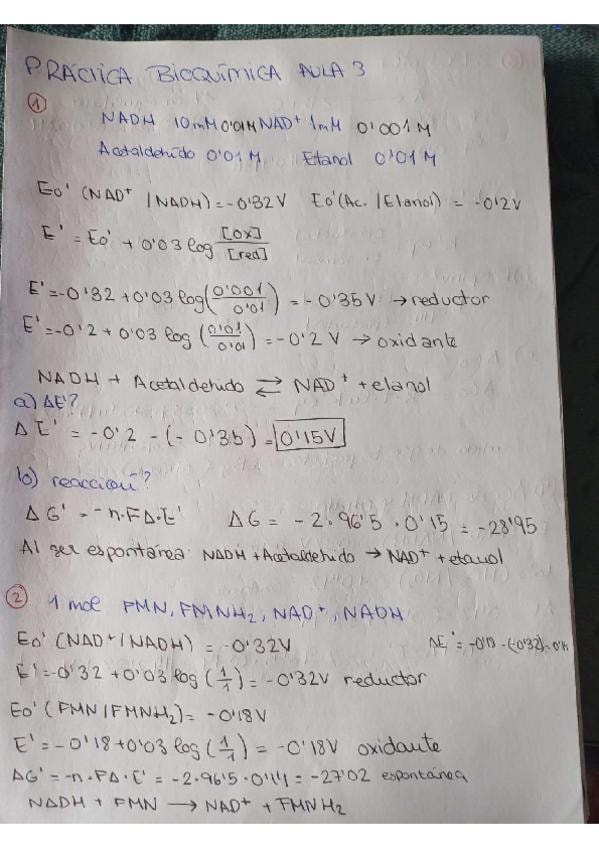 PRÁCTICA BIOQUÍMICA AULA 3
①
NADH 10mM 0'01M NAD⁺ 1mM 0'001M
Acetaldehído 0'01M Etanol 0'01M
Eo' (NAD⁺/NADH) = -0'32V Eo' (Ac./Etanol) = -0'2V
E' = Eo' + 0'03 log [ox]/[red]
E' = -0'32 + 0'03 log (0'001/0'01) = -0'35V → reductor
E' = -0'2 + 0'03 log (0'01/0'01) = -0'2V → oxidante
NADH + Acetaldehído ⇄ NAD⁺ + etanol
a) ΔE'?
ΔE' = -0'2 - (-0'35) = 0'15V
b) reacción?
ΔG' = -n·FΔ·E' ΔG = -2·96'5·0'15 = -28'95
Al ser espontánea: NADH + Acetaldehído → NAD⁺ + etanol
② 1 mol FMN, FMNH₂, NAD⁺, NADH
Eo' (NAD⁺/NADH) = -0'32V ΔE' = -0'18 - (-0'32) = 0'14
E' = -0'32 + 0'03 log (1/1) = -0'32V reductor
Eo' (FMN/FMNH₂) = -0'18V
E' = -0'18 + 0'03 log (1/1) = -0'18V oxidante
ΔG' = -n·FΔ·E' = -2·96'5·0'14 = -27'02 espontánea
NADH + FMN → NAD⁺ + FMNH₂